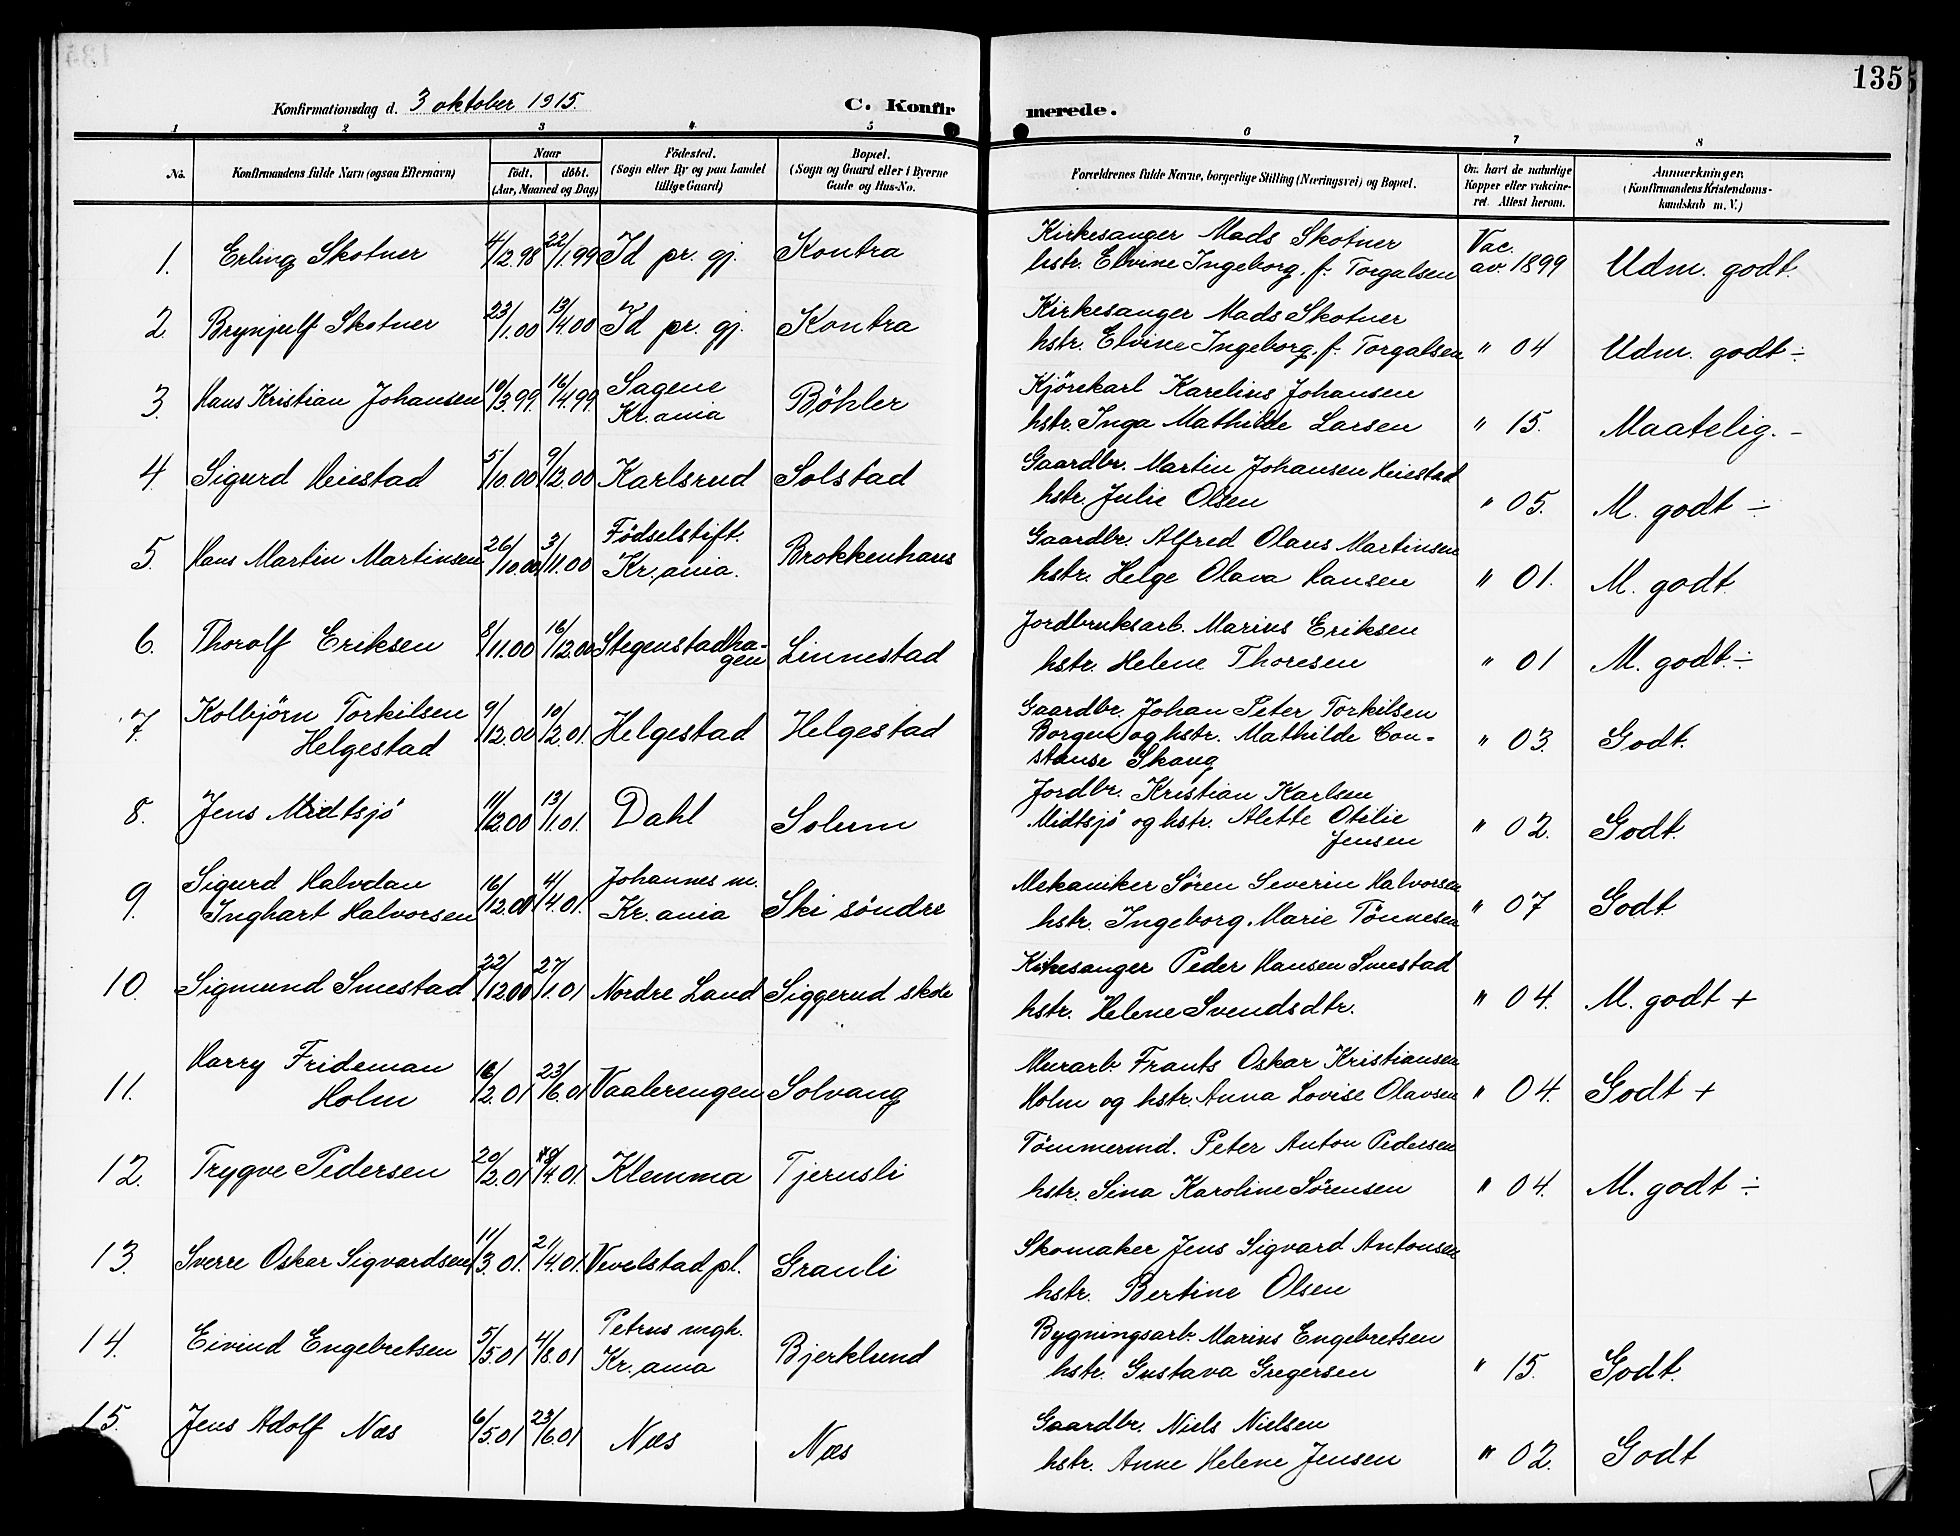 135
Konfirmationsdag d. 3 oktober 1915.
C. Konfirmerede.
1 2 3 4 5 6 7 8
No. Konfirmandens fulde Navn (ogsaa Efternavn) Naar födt. döbt. (Aar, Maaned og Dag) Födested. (Sogn eller By og paa Landet tillige Gaard) Bopæl. (Sogn og Gaard eller i Byerne Gade og Hus-No. Forældrenes fulde Navne, borgerlige Stilling (Næringsvei) og Bopæl. Om havt de naturlige Kopper eller vakcineret. Attest herom. Anmærkninger. (Konfirmandens Kristendomskundskab m. V.)
1. Erling Skotner 4/12.98 22/1.99 Id pr. gj. Kontra Kirkesanger Mads Skotner
hstr. Elvine Ingeborg f. Torgalsen Vac. av. 1899 Udm. godt.
2. Brynjulf Skotner 23/1.00 13/4.00 Id pr. gj. Kontra Kirkesanger Mads Skotner
hstr. Elvine Ingeborg f. Torgalsen " 04 Udm. godt ÷
3. Hans Kristian Johansen 10/3.99 16/4.99 Sagene Kr.ania Böhler Kjörekarl Karelius Johansen
hstr. Inga Mathilde Larsen " 15. Maatelig. -
4. Sigurd Heiestad 5/10.00 9/12.00 Karlsrud Solstad Gaardbr. Martin Johansen Heiestad
hstr. Julie Olsen " 05. M. godt ÷
5. Hans Martin Martinsen 26/10.00 3/11.00 Födselstift. Kr.ania. Brokkenhaus Gaardbr. Alfred Olaus Martinsen
hstr. Helge Olava Hansen " 01. M. godt.
6. Thorolf Eriksen 8/11.00 16/12.00 Stegenstadhagen Linnestad Jordbruksarb. Marius Eriksen
hstr. Helene Thoresen " 01 M. godt ÷
7. Kolbjörn Torkilsen Helgestad 9/12.00 10/2.01. Helgestad Helgestad Gaardbr. Johan Peter Torkilsen
Borgen og hstr. Mathilde Con-
stanse Skaug " 03. Godt.
8. Jens Midtsjö 11/12.00 13/1.01. Dahl Solum Jordbr. Kristian Karlsen
Midtsjö og hstr. Alette Otilie
Jensen " 02. Godt.
9. Sigurd Halvdan Inghart Halvorsen 16/12.00 4/4.01. Johannes m. Kr.ania Ski söndre Mekaniker Sören Severin Halvorsen
hstr. Ingeborg Marie Tönnesen " 07 Godt
10. Sigmund Smestad 22/12.00 27/1.01 Nordre Land Siggerud skole Kirkesanger Peder Hansen Smestad
hstr. Helene Svendsdtr. " 04. M. godt +
11. Harry Frideman Holm 16/2.01 23/6.01 Vaalerengen Solvang Murarb. Frants Oskar Kristiansen
Holm og hstr. Anna Lovise Olavsen " 04. Godt +
12. Trygve Pedersen 20/2.01 /4.01. Klemma Tjernsli Tömmermd. Peter Anton Pedersen
hstr. Sina Karoline Sörensen " 04. M. godt ÷
13. Sverre Oskar Sigvardsen 11/3.01. 21/4.01. Vevelstad pl. Granli Skomaker Jens Sigvard Antonsen
hstr. Bertine Olsen
14. Eivind Engebretsen 5/5.01 4/8.01 Petrus mgh. Kr.ania Bjerklund Bygningsarb. Marius Engebretsen
hstr. Gustava Gregersen " 15. Godt.
15. Jens Adolf Næs 6/5.01 23/6.01 Næs Næs Gaardbr. Niels Nielsen
hstr. Anne Helene Jensen " 02. Godt